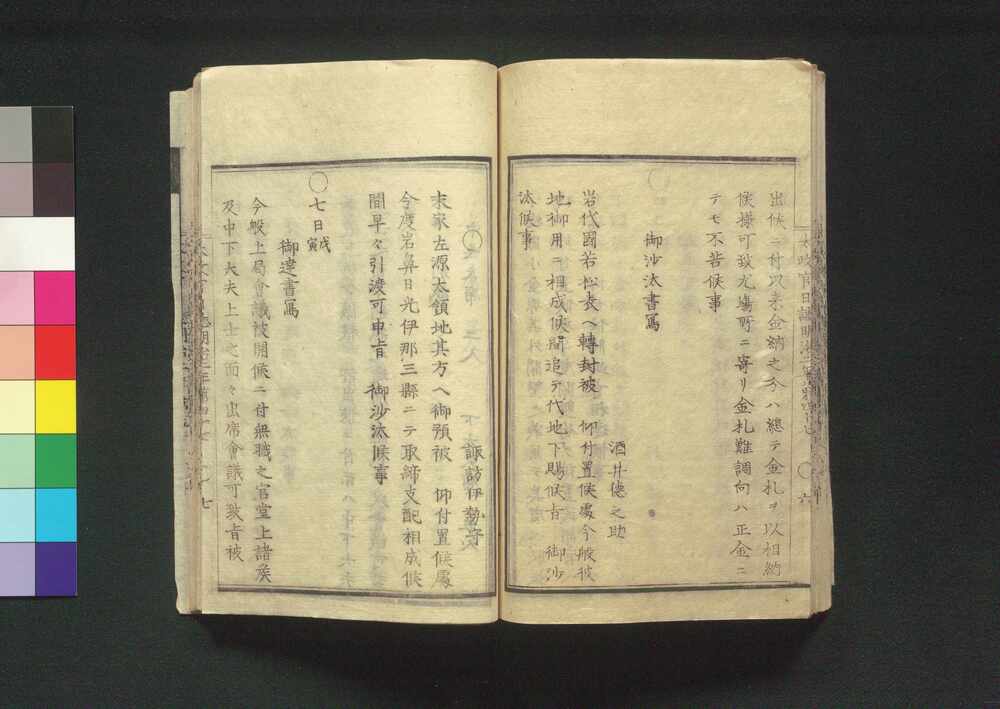 出候ニ付以来金納之分ハ總テ金札ヲ以相納
候樣可致尤塲所ニ寄リ金札難調向ハ正金ニ
テモ不苦候事
御沙汰書寫
酒井徳之助
岩代國若松表ヘ轉封被 仰付置候處今般彼
地御用ニ相成候間追テ代地下賜候旨 御沙
汰候事
諏訪伊勢守
末家左源太領地其方ヘ御預被 仰付置候處
今度岩鼻日光伊那三縣ニテ取締支配相成候
間早々引渡可申旨 御沙汰候事
〇七日戊寅
御達書寫
今般上局會議被開候ニ付無職之官堂上諸侯
及中下大夫上士之面々出席會議可致旨被